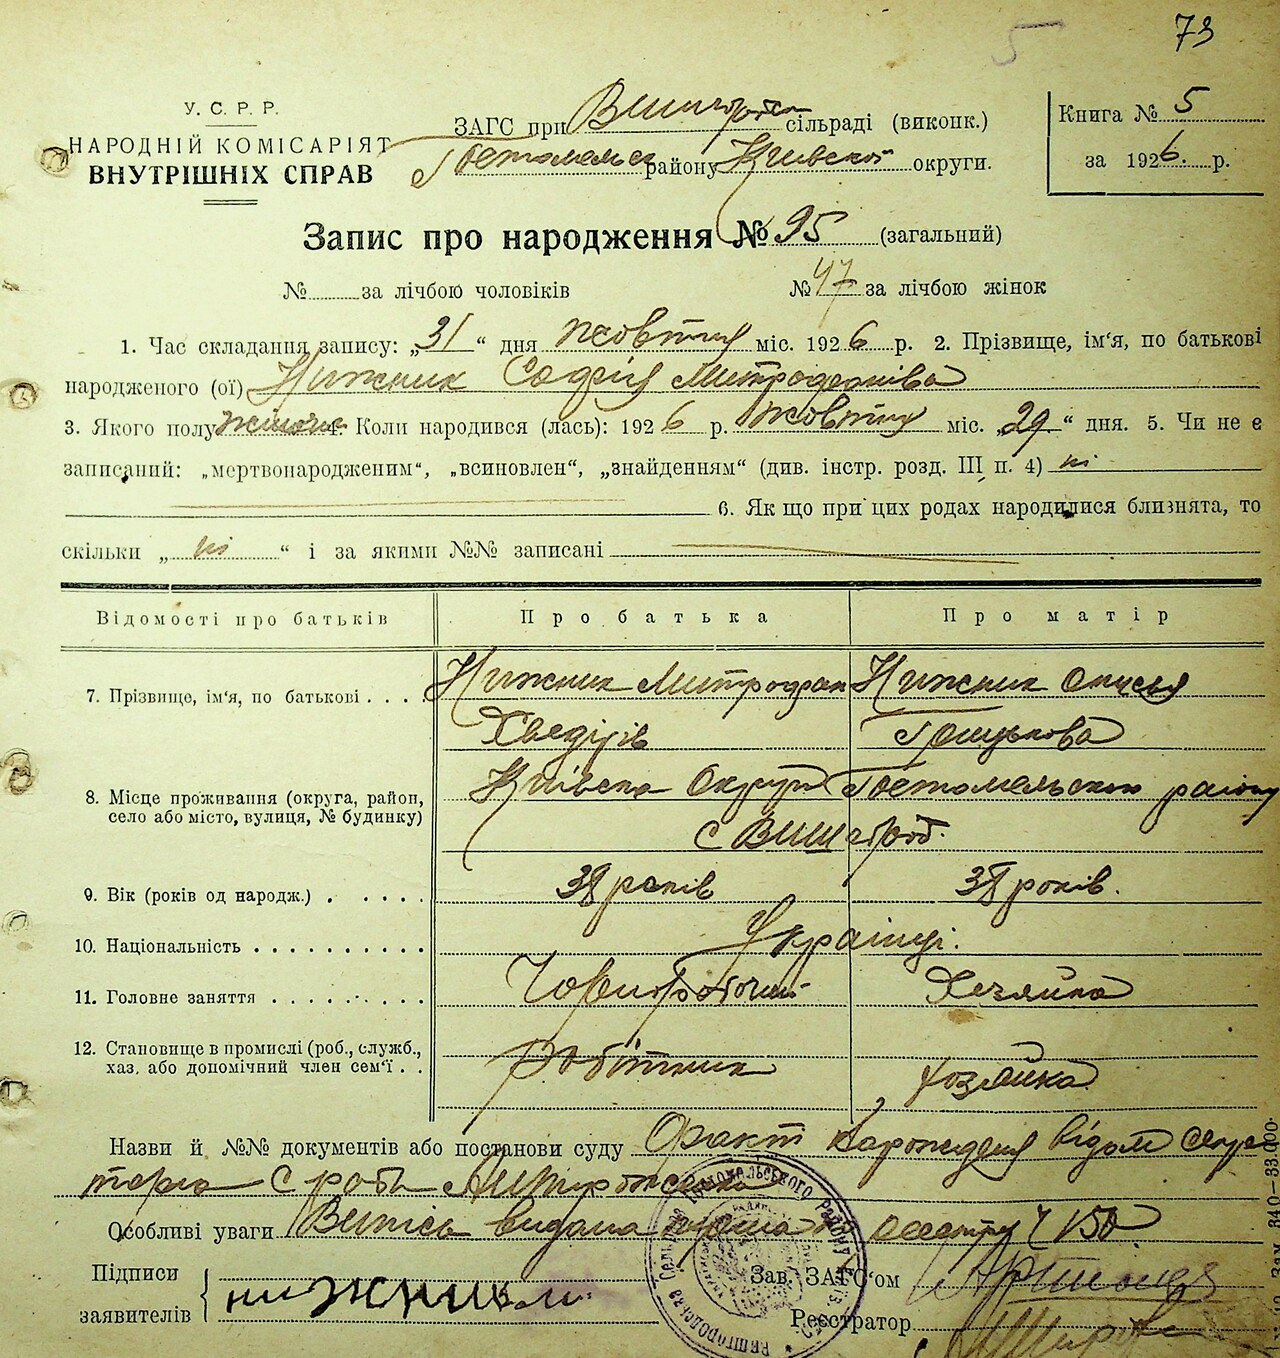 73
5
У. С. Р. Р.
НАРОДНІЙ КОМІСАРІЯТ
ВНУТРІШНІХ СПРАВ
ЗАГС при сільраді (виконк.)
району Київської округи.
Книга № 5
за 1926. р.
Запис про народження № 95 (загальний)
№ за лічбою чоловіків № 47 за лічбою жінок
1. Час складання запису: „31“ дня жовтня міс. 1926 р. 2. Прізвище, ім'я, по батькові
народженого (ої) Нижник Софія Митрофанівна
3. Якого полу жіноч. 4. Коли народився (лась): 1926 р. жовтня міс. „29“ дня. 5. Чи не є
записаний: „мертвонародженим“, „всиновлен“, „знайденням“ (див. інстр. розд. III п. 4) ні
6. Як що при цих родах народилися близнята, то
скільки „ні“ і за якими №№ записані
Відомості про батьків Про батька Про матір
7. Прізвище, ім'я, по батькові . . . . Нижник Митрофан Нижник
Хведірів Грицькова
8. Місце проживання (округа, район, Київска Округа Гостомельского району
село або місто, вулиця, № будинку) с Вишгород.
9. Вік (років од народж.) . . . . . 38 років 38 років.
10. Національність . . . . . . . . . . Українці.
11. Головне заняття . . . . . . . . . Чорноробочий Хезяйка
12. Становище в промислі (роб., служб., Робітник хозяйка
хаз. або допомічний член сем'ї . .
Назви й №№ документів або постанови суду Факт народження відом секре
таря С ради
Особливі уваги Випись видана реєстру Ч 150
Підписи Зав. ЗАГС'ом
заявителів нижник м Реєстратор